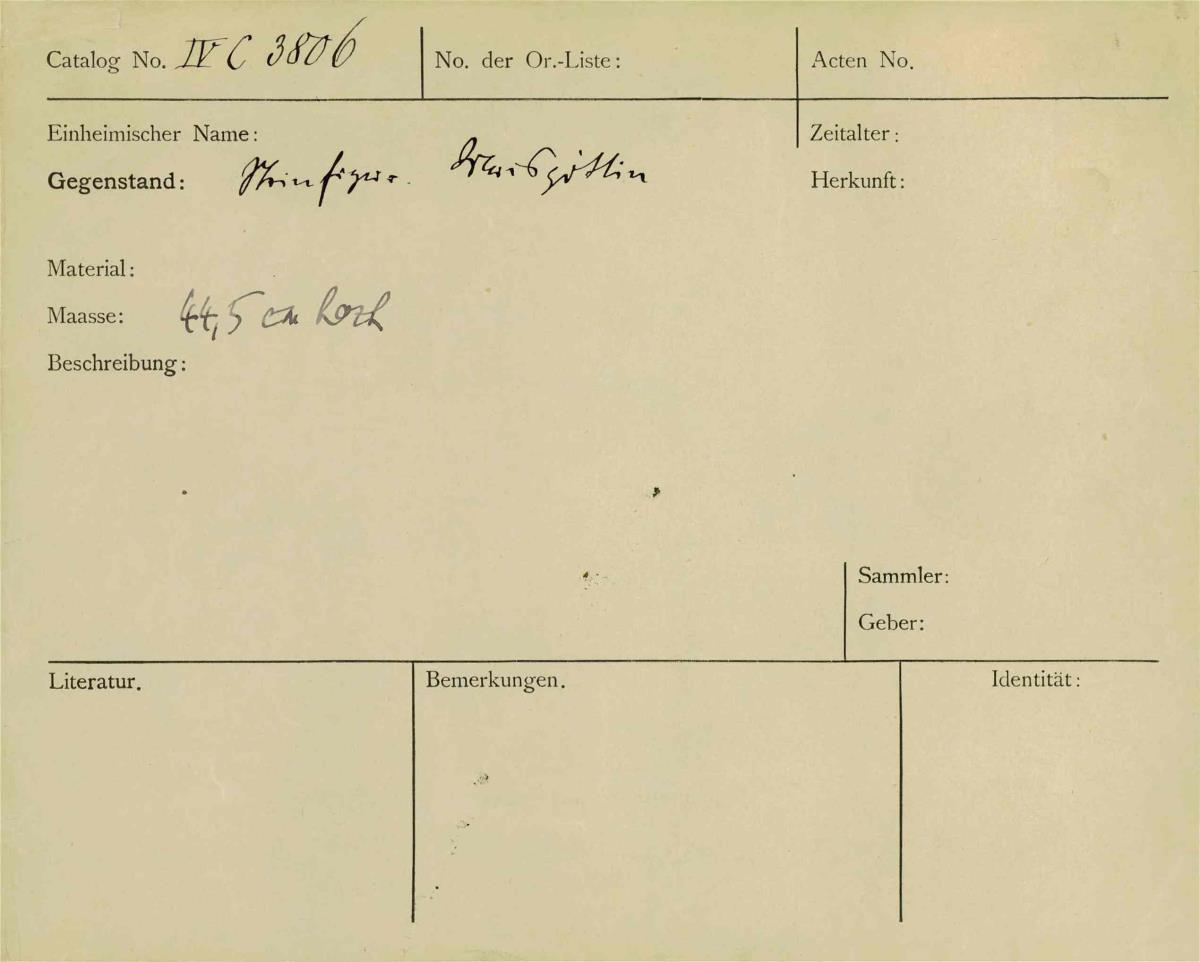 Catalog No. IV C 3806 No. der Or.-Liste: Acten No.
Einheimischer Name: Zeitalter:
Gegenstand: Steinfigur. Maisgöttin Herkunft:
Material:
Maasse: 44,5 cm hoch
Beschreibung:
Sammler:
Geber:
Literatur. Bemerkungen. Identität: